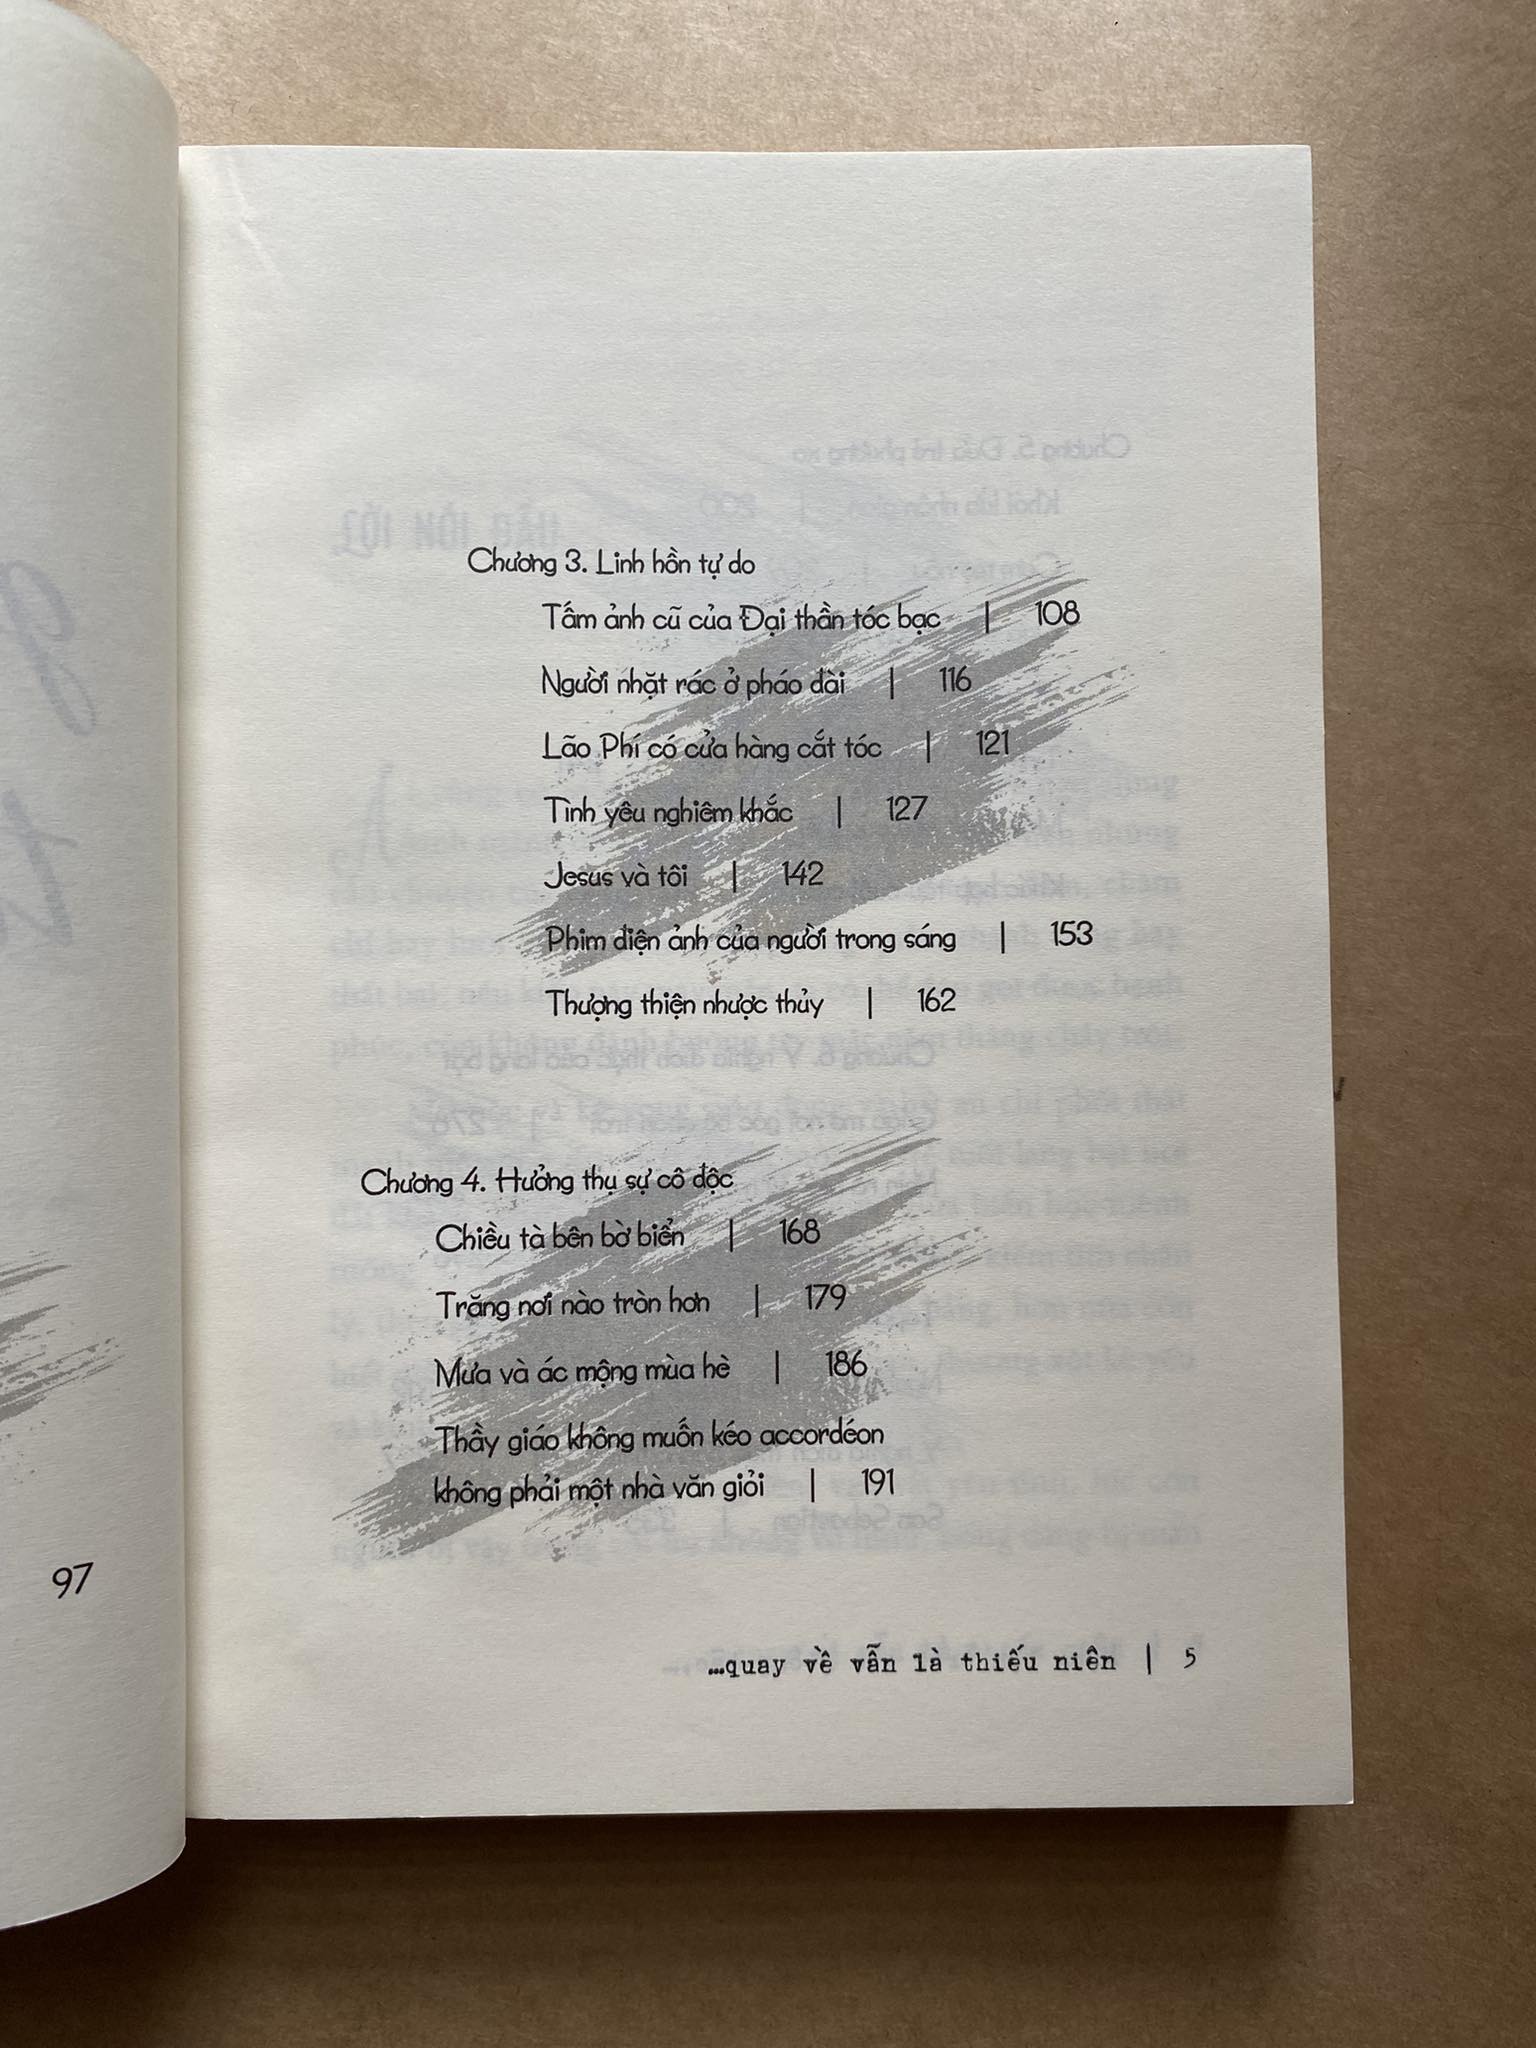 Chương 3. Linh hồn tự do
Tấm ảnh cũ của Đại thần tóc bạc | 108
Người nhặt rác ở pháo đài | 116
Lão Phí có cửa hàng cắt tóc | 121
Tình yêu nghiêm khắc | 127
Jesus và tôi | 142
Phim điện ảnh của người trong sáng | 153
Thượng thiện nhược thủy | 162
Chương 4. Hưởng thụ sự cô độc
Chiều tà bên bờ biển | 168
Trăng nơi nào tròn hơn | 179
Mưa và ác mộng mùa hè | 186
Thầy giáo không muốn kéo accordéon
không phải một nhà văn giỏi | 191
97
...quay về vẫn là thiếu niên | 5